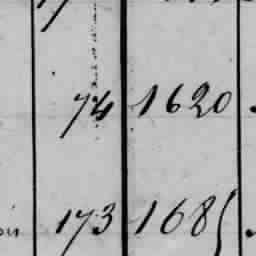 74 1620
173 1685